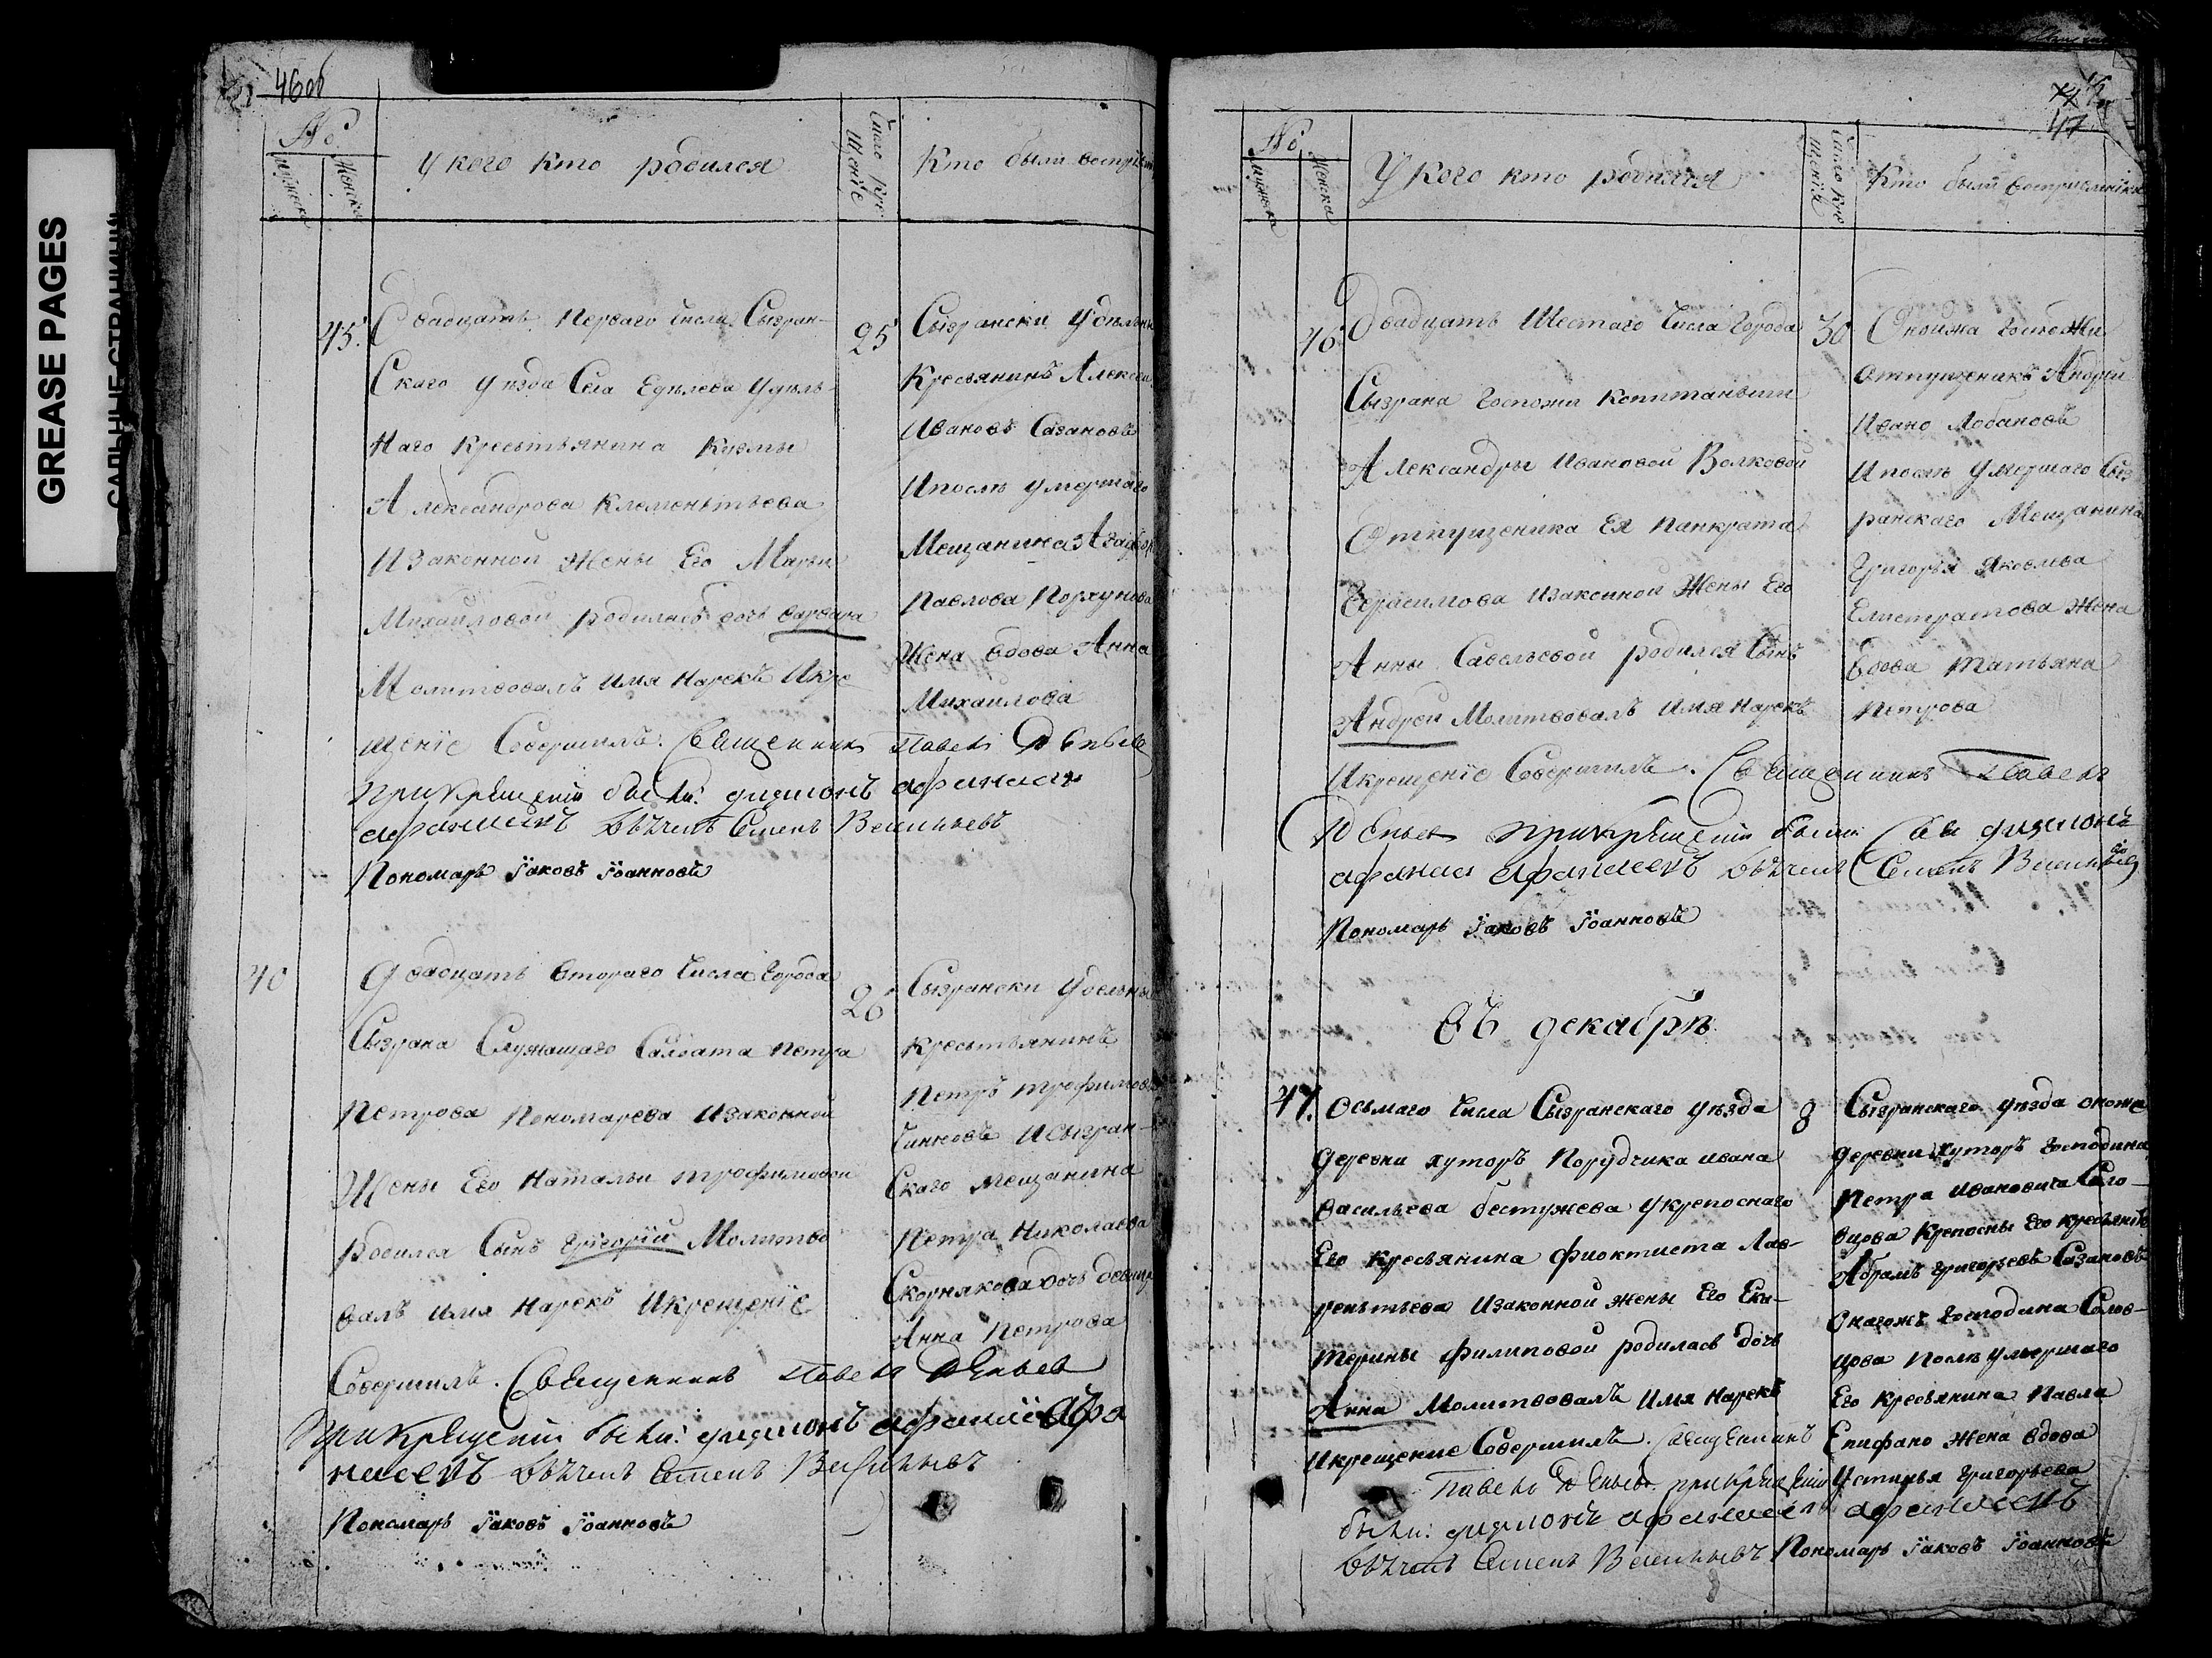 GREASE PAGES
САЛЬНЫЕ СТРАНИЦЫ
46об
№
Мужеска
Женска
У кого кто родился
Число Кре
щенїе
Кто были воспрїем
45.
Двадцать перваго числа Сызран-
скаго уезда Села Едѣлева Удѣль-
наго крестьянина Кузмы
Александрова Клементьева
Изаконной жены Его Марьи
Михайловой родилась дочь Варвара
Молитвовалъ имя нарекъ Икре
щенїе Совершилъ. Священникъ Павелъ
При крещении были: диаконъ афанаси
афанасевъ Семенъ Васильевъ
Пономарь Їаковъ Їоанновъ
25
Сызрански удѣльны
Кресьянинъ Алексеи
Ивановъ Сазановъ
Ипослѣ умершаго
Мещанина
Павлова
Жена вдова Анна
Михаилова
40
Двадцать втораго числа города
Сызрана Служащаго Салдата Петра
Петрова Пономарева Изаконной
Жены Его Натальи Трофимовои
родился Сынъ Григорїй Молитво
валъ имя нарекъ Икрещенїе
Совершилъ. Священникъ Павелъ
При крещении были: диаконъ афанасїе Афа
насевъ Семенъ Васильевъ
Пономарь Їаковъ Їоанновъ
26
Сызрански удельны
крестьянинъ
Петръ трофимовъ
Исызран-
скаго мещанина
Петра Николаева
Скорнякова дочь девица
Анна Петрова
47
№
Мужеска
Женска
У кого кто родился
Число кре
щенїя
Кто были восприемники
46
Двадцать Шестаго числа города
Сызрана госпожи капитанши
Александры Ивановой Волковой
Отпущеника Ея Панкрата
Герасимова Изаконной Жены Его
Анны Савельевой родился Сынъ
Андрей Молитвовалъ имя нарекъ
Икрещенїе Совершилъ. Священникъ Павелъ
При крещении были: диаконъ
афанаси афанасевъ Семенъ Васильев
Пономарь Їаковъ Їоанновъ
30
Оной жа госпожи
Отпущеникъ Андреи
Ивано Лобановъ
Ипослѣ умершаго Сыз
ранскаго Мещанина
Григорья Яковлева
Елистратова Жена
вдова Татьяна
Петрова
Въ декабрѣ
47.
Осьмаго числа Сызранскаго уѣзда
деревни хуторъ Порудчика ивана
васильева бестужева укрепоснаго
Его Кресьянина Фиоктиста Лав-
реньтьева Изаконной жены Его Ека-
терины Филиповой родилась дочь
Анна Молитвовалъ имя нарекъ
Икрещение Совершилъ. Священникъ
Павелъ при крещении
были: диаконъ афанасеи афанасевъ
Семенъ Васильевъ Пономарь Їаковъ Їоанновъ
8
Сызранскаго уѣзда оножа
деревни Хуторъ Господина
Петра Ивановича Соло-
вцова Крепосны Его кресьянинъ
Абрамъ Григорьевъ Сазановъ
Онагожъ Господина Солов-
цова Послѣ умершаго
Его Кресьянина Павла
Епифано жена вдова
Устинья Григорьева